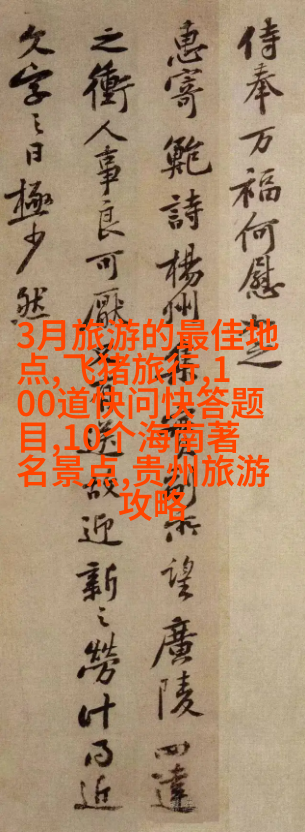 侍奉万福何慰
惠寄鮑詩楊州集 所望廣陵四達
之衝人事良可厭又有送故迎新之勞计
文字之日極少然
3月旅游的最佳地
点,飞猪旅行,1
00道快问快答题
目,10个海南著
名景点,贵州旅游
攻略